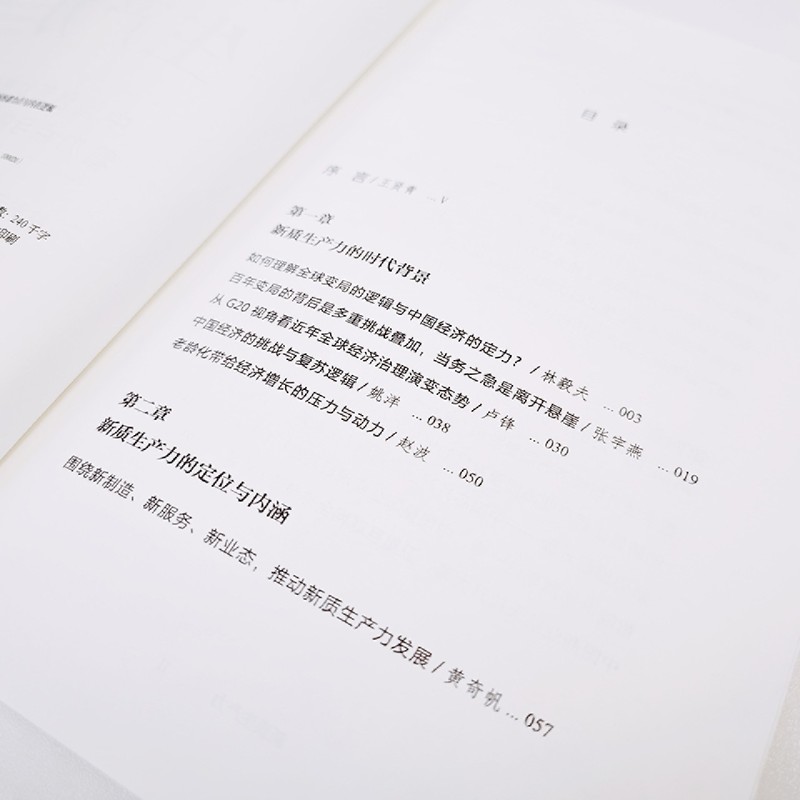 数: 240 千字
印刷
目 录
序 言 / 王贤青 … V
第一章
新质生产力的时代背景
如何理解全球变局的逻辑与中国经济的定力? / 林毅夫 … 003
百年变局的背后是多重挑战叠加，当务之急是离开悬崖 / 张宇燕 … 019
从 G20 视角看近年全球经济治理演变态势 / 卢锋 … 030
中国经济的挑战与复苏逻辑 / 姚洋 … 038
老龄化带给经济增长的压力与动力 / 赵波 … 050
第二章
新质生产力的定位与内涵
围绕新制造、新服务、新业态，推动新质生产力发展 / 黄奇帆 … 057